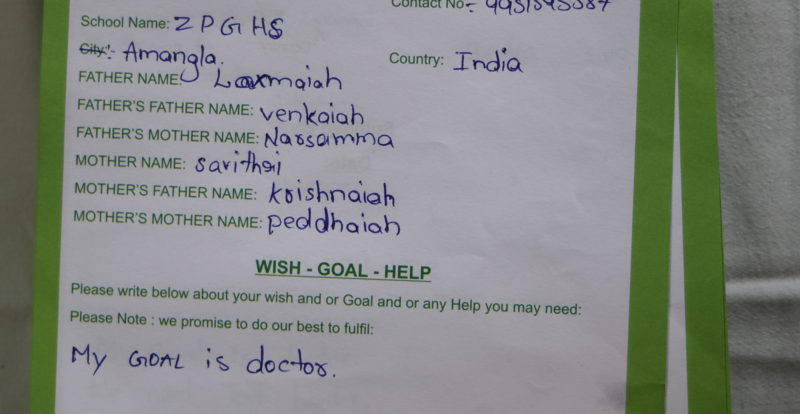 Contact No:- 9951545587
School Name: ZPGHS
City:- Amangla.
Country: India
FATHER NAME: Laxmaiah
FATHER'S FATHER NAME: venkaiah
FATHER'S MOTHER NAME: Narsamma
MOTHER NAME: savithri
MOTHER'S FATHER NAME: krishnaiah
MOTHER'S MOTHER NAME: peddhaiah
WISH - GOAL - HELP
Please write below about your wish and or Goal and or any Help you may need:
Please Note : we promise to do our best to fulfil:
My GOAL is doctor.